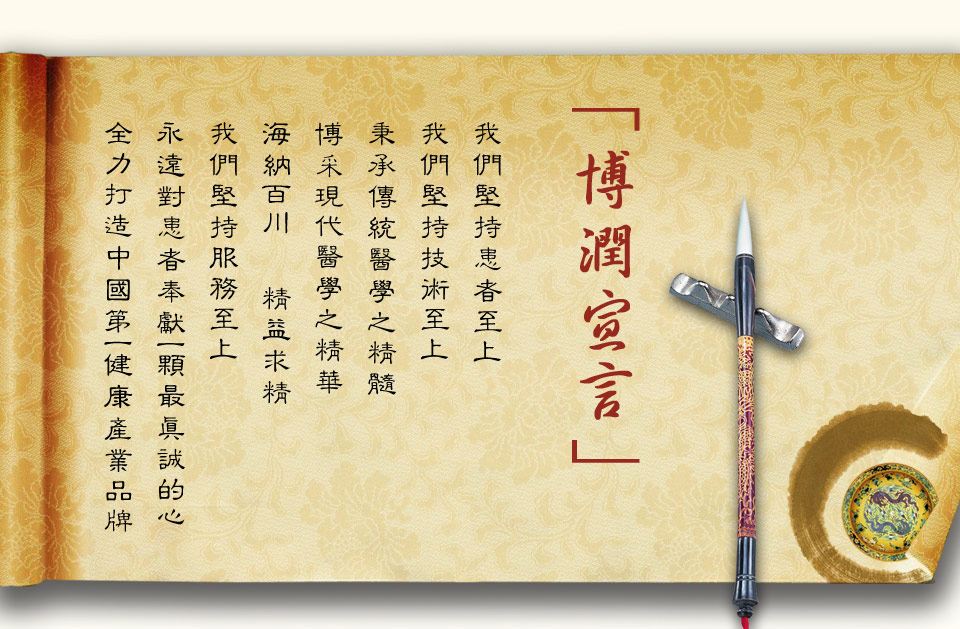 「博潤宣言」
我們堅持患者至上
我們堅持技術至上
秉承傳統醫學之精髓
博采現代醫學之精華
海納百川 精益求精
我們堅持服務至上
永遠對患者奉獻一顆最真誠的心
全力打造中國第一健康產業品牌